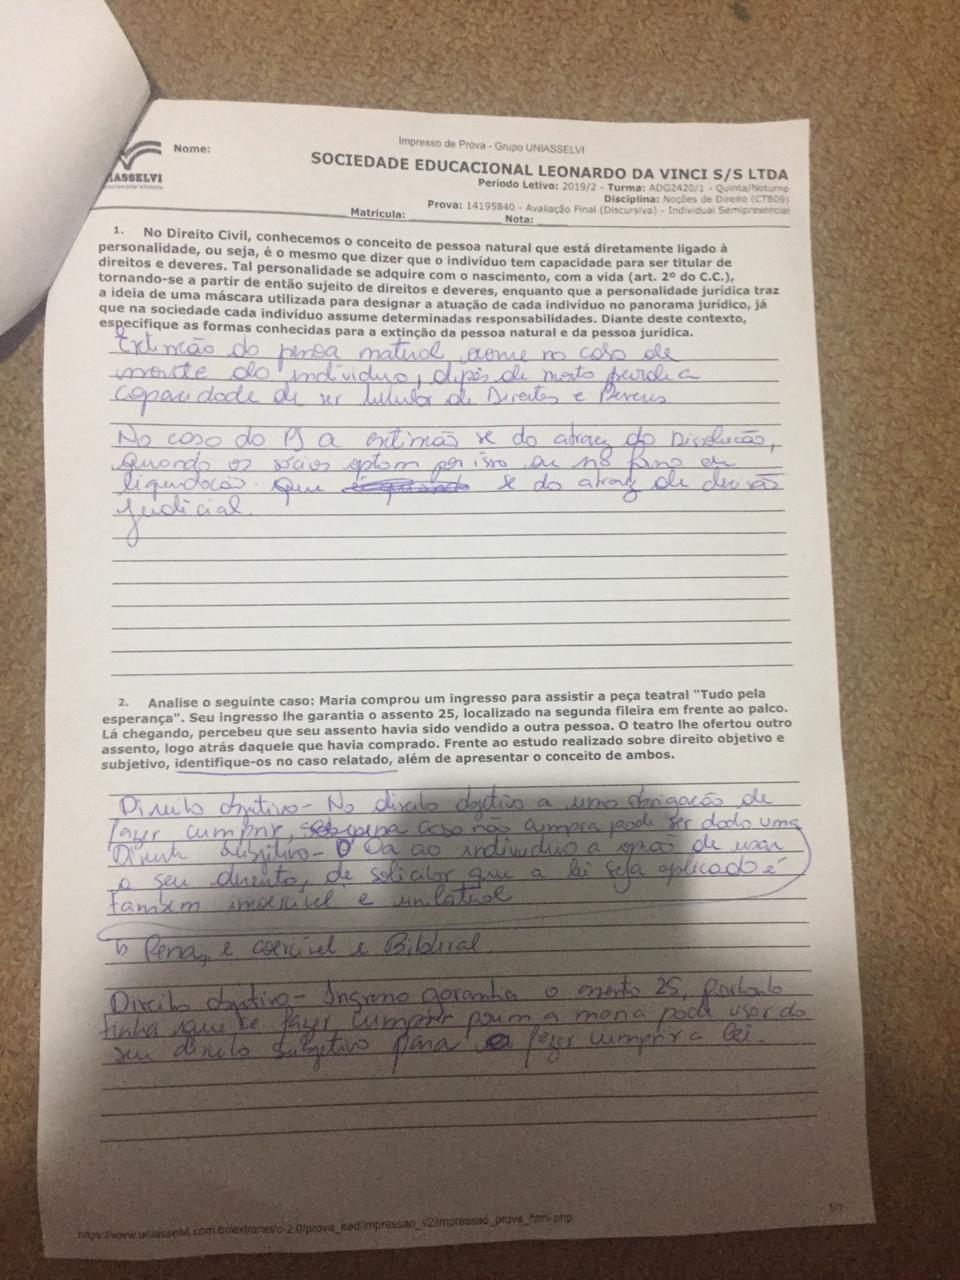 Impresso de Prova - Grupo UNIASSELVI
Nome:
ASSELVI
SOCIEDADE EDUCACIONAL LEONARDO DA VINCI S/S LTDA
Período Letivo: 2019/2 - Turma: ADG2420/1 - Quinta/Noturno
Disciplina: Noções de Direito (CTB09)
Prova: 14195840 - Avaliação Final (Discursiva) - Individual Semipresencial
Matrícula: Nota:
1. No Direito Civil, conhecemos o conceito de pessoa natural que está diretamente ligado à
personalidade, ou seja, é o mesmo que dizer que o indivíduo tem capacidade para ser titular de
direitos e deveres. Tal personalidade se adquire com o nascimento, com a vida (art. 2º do C.C.),
tornando-se a partir de então sujeito de direitos e deveres, enquanto que a personalidade jurídica traz
a ideia de uma máscara utilizada para designar a atuação de cada indivíduo no panorama jurídico, já
que na sociedade cada indivíduo assume determinadas responsabilidades. Diante deste contexto,
especifique as formas conhecidas para a extinção da pessoa natural e da pessoa jurídica.
Extinção do pessoa natural no caso de
morte do individuo, depois de morto perde a
capacidade de ser titular de Direitos e Deveres
No caso do PJ a se do atraz do Dissolucão,
quando os sócios optam por isso ou fase de
liquidacão. que se do atraz de decisão
Judicial.
2. Analise o seguinte caso: Maria comprou um ingresso para assistir a peça teatral "Tudo pela
esperança". Seu ingresso lhe garantia o assento 25, localizado na segunda fileira em frente ao palco.
Lá chegando, percebeu que seu assento havia sido vendido a outra pessoa. O teatro lhe ofertou outro
assento, logo atrás daquele que havia comprado. Frente ao estudo realizado sobre direito objetivo e
subjetivo, identifique-os no caso relatado, além de apresentar o conceito de ambos.
Direito objetivo - No direito objetivo a uma obrigação de
fazer cumprir, caso não cumpra pode ser dado uma
Direito Subjetivo - Da ao individuo a opção de usar
o seu direito, de solicitar que a lei seja aplicado é
também e unilatral
Pena, e coercivel e Bilateral
Direito objetivo - Ingresso garantia o assento 25, portanto
tinha que se fazer cumprir pode usar do
seu direito subjetivo para fazer cumprir a lei.
https://www.uniasselvi.com.br/extranet/o-2.0/prova_ead/impressao_v2/impressao_prova_html.php
1/1